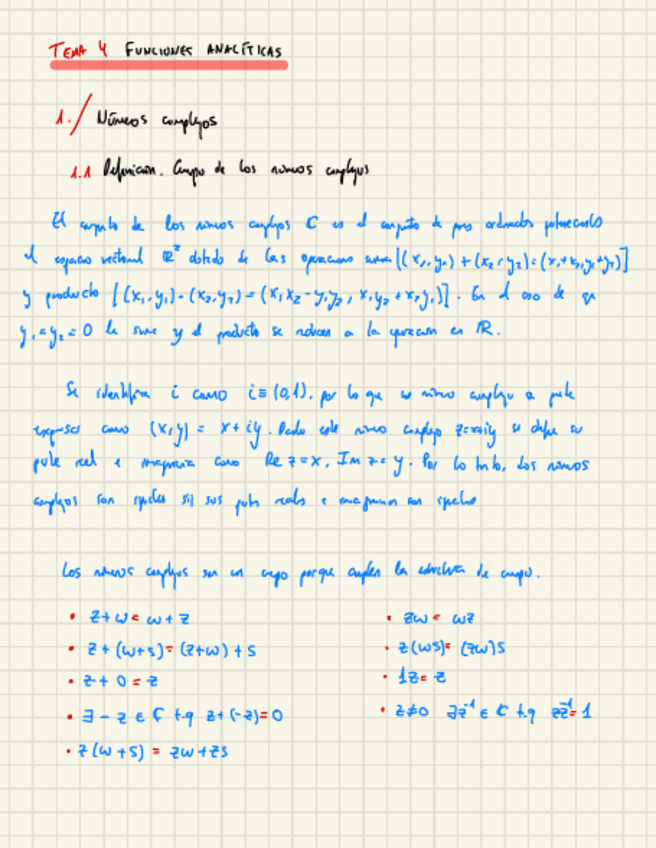 TEMA 4 FUNCIONES ANALÍTICAS
1./ Números complejos
1.1 Definición. Cuerpo de los números complejos
El conjunto de los números complejos C es el conjunto de pares ordenados pertenecientes
al espacio vectorial ℝ² dotado de las operaciones suma [(x₁,y₁) + (x₂,y₂) = (x₁+x₂,y₁+y₂)]
y producto [(x₁,y₁)·(x₂,y₂) = (x₁x₂-y₁y₂, x₁y₂+x₂y₁)]. En el caso de que
y₁=y₂=0 la suma y el producto se reducen a la operación en ℝ.
Se identifica i como i≡(0,1), por lo que un número complejo se puede
expresar como (x,y) = x+iy. Dado este número complejo z=x+iy se define su
parte real e imaginaria como Re z=x, Im z=y. Por lo tanto, dos números
complejos son iguales sii sus partes reales e imaginarias son iguales
Los números complejos son un cuerpo porque cumplen la estructura de cuerpo.
• z+w=w+z
• z+(w+s)=(z+w)+s
• z+0=z
• ∃-z∈ℂ t.q z+(-z)=0
• z(w+s) = zw+zs
• zw=wz
• z(ws)=(zw)s
• 1z=z
• z≠0 ∃z⁻¹∈ℂ t.q zz⁻¹=1